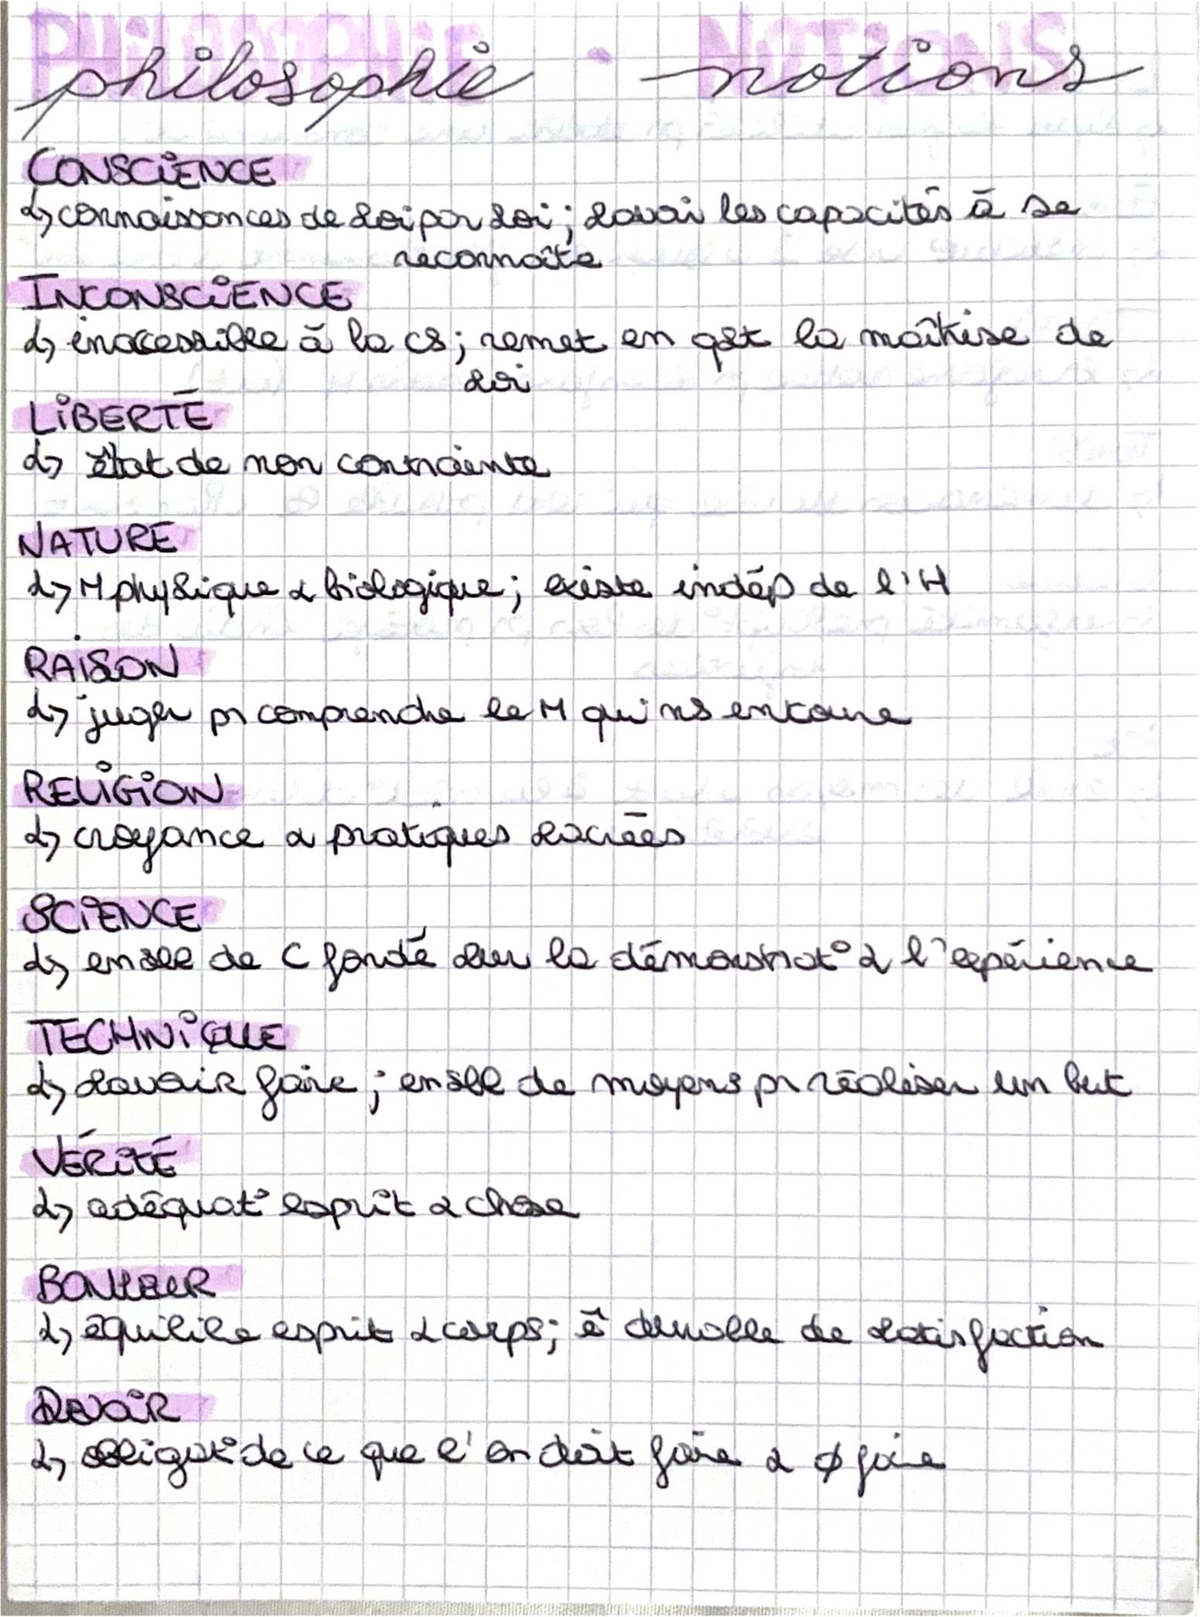 PHILOSOPHIE • NOTIONS
philosophie notions
CONSCIENCE
↳ connaissances de soi par soi ; savoir les capacités à se
reconnaîte
INCONSCIENCE
↳ inaccessible à la cs ; remet en qst la maîtrise de
soi
LIBERTÉ
↳ état de non contrainte
NATURE
↳ M physique & biologique ; existe indép de l'H
RAISON
↳ juger pr comprendre le M qui ns entoure
RELIGION
↳ croyance & pratiques sacrées
SCIENCE
↳ enseble de C fondé sur la démonstrat° & l'expérience
TECHNIQUE
↳ savoir faire ; ensble de moyens pr réaliser un but
VÉRITÉ
↳ adéquat° esprit & chose
BONHEUR
↳ équilibre esprit & corps ; ê durable de satisfaction
DEVOIR
↳ obligat° de ce que l'on doit faire & ∅ faire